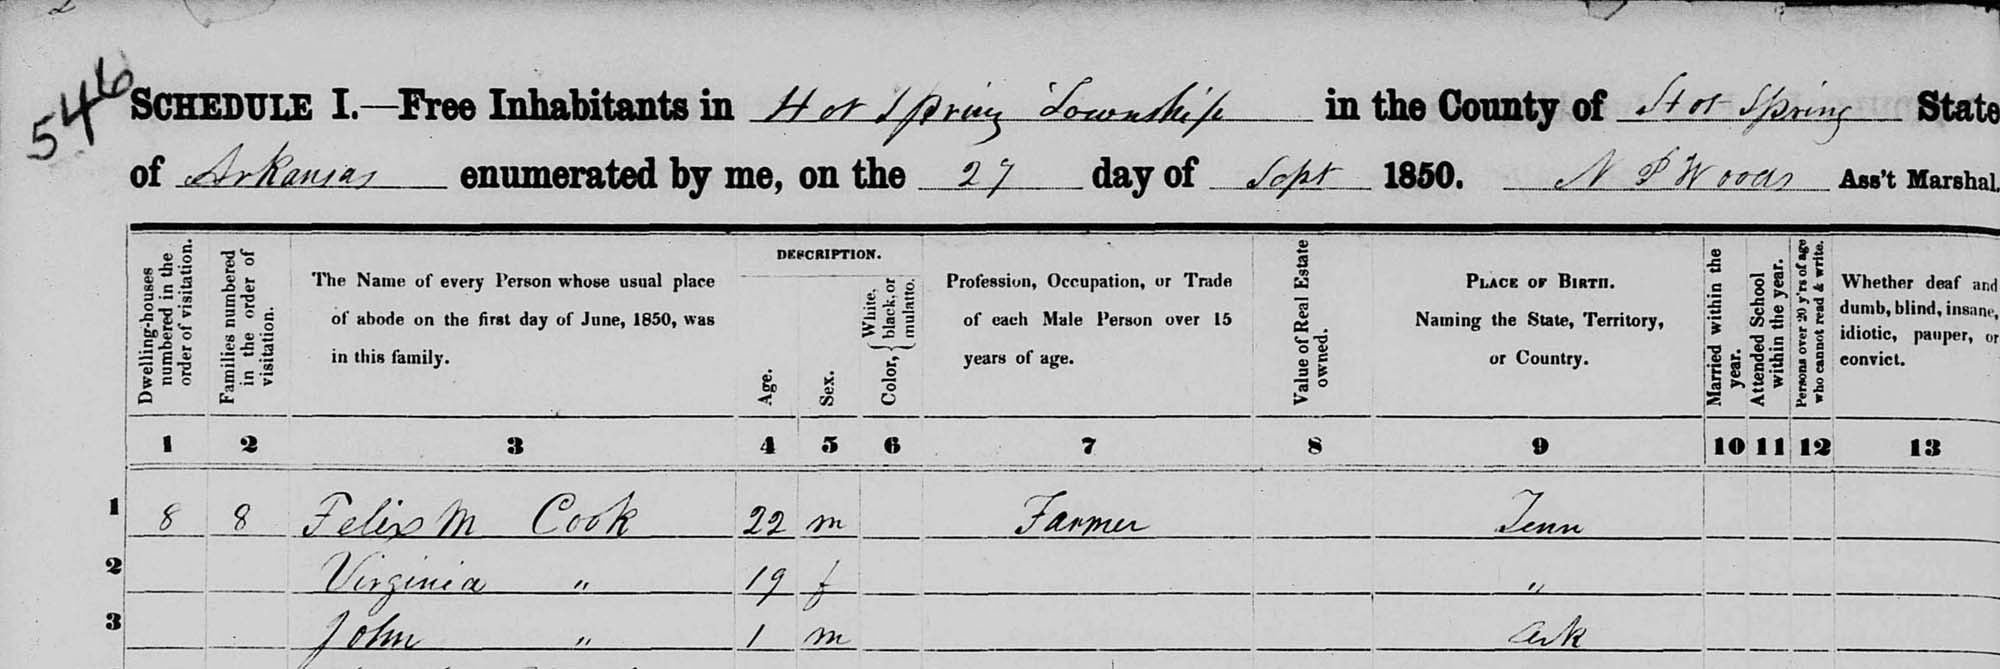 546
SCHEDULE I.—Free Inhabitants in Hot Spring Township in the County of Hot Spring State
of Arkansas enumerated by me, on the 27 day of Sept 1850. N P Woods Ass't Marshal.
Dwelling-houses numbered in the order of visitation.
Families numbered in the order of visitation.
The Name of every Person whose usual place
of abode on the first day of June, 1850, was
in this family.
DESCRIPTION.
Age.
Sex.
Color, { White, black, or mulatto.
Profession, Occupation, or Trade
of each Male Person over 15
years of age.
Value of Real Estate owned.
PLACE OF BIRTH.
Naming the State, Territory,
or Country.
Married within the year.
Attended School within the year.
Persons over 20 y'rs of age who cannot read & write.
Whether deaf and
dumb, blind, insane,
idiotic, pauper, or
convict.
1 2 3 4 5 6 7 8 9 10 11 12 13
1 8 8 Felix M Cook 22 m Farmer Tenn
2 Virginia " 19 f "
3 John " 1 m Ark